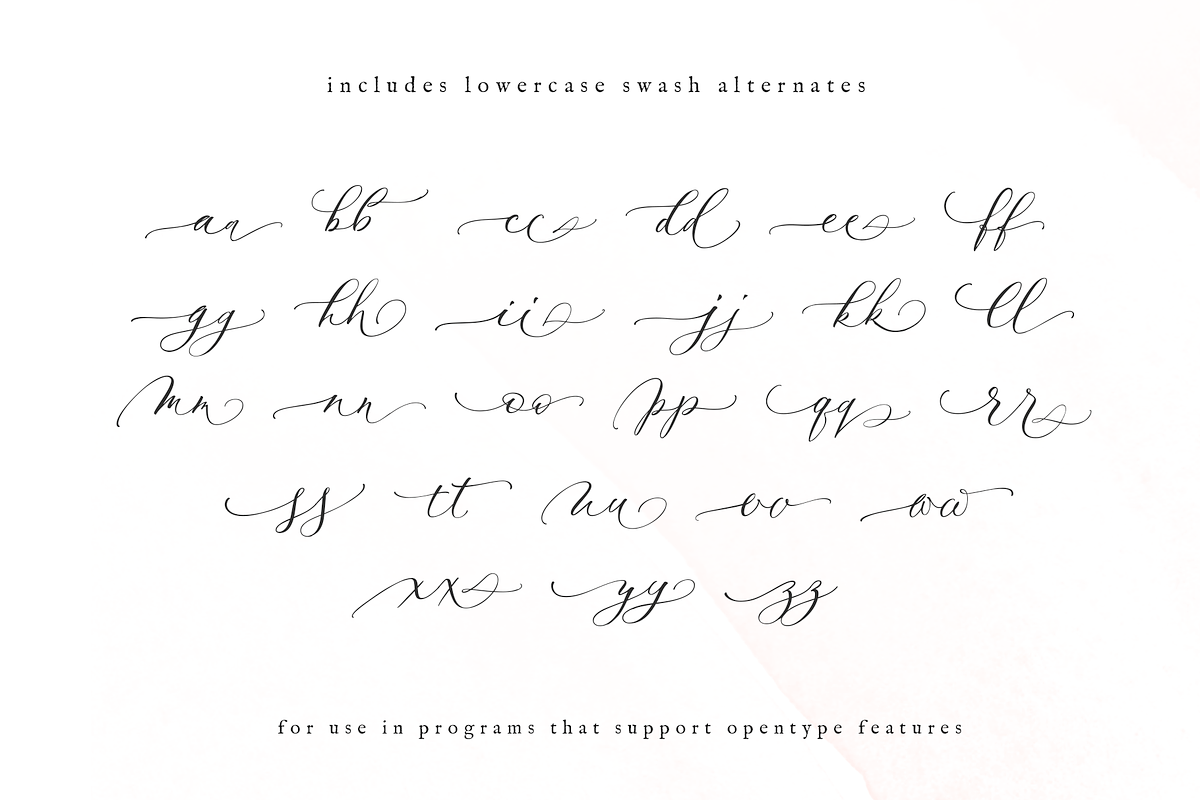 includes lowercase swash alternates
aa bb cc dd ee ff
gg hh ii jj kk ll
mm nn oo pp qq rr
ss tt uu vv ww
xx yy zz
for use in programs that support opentype features